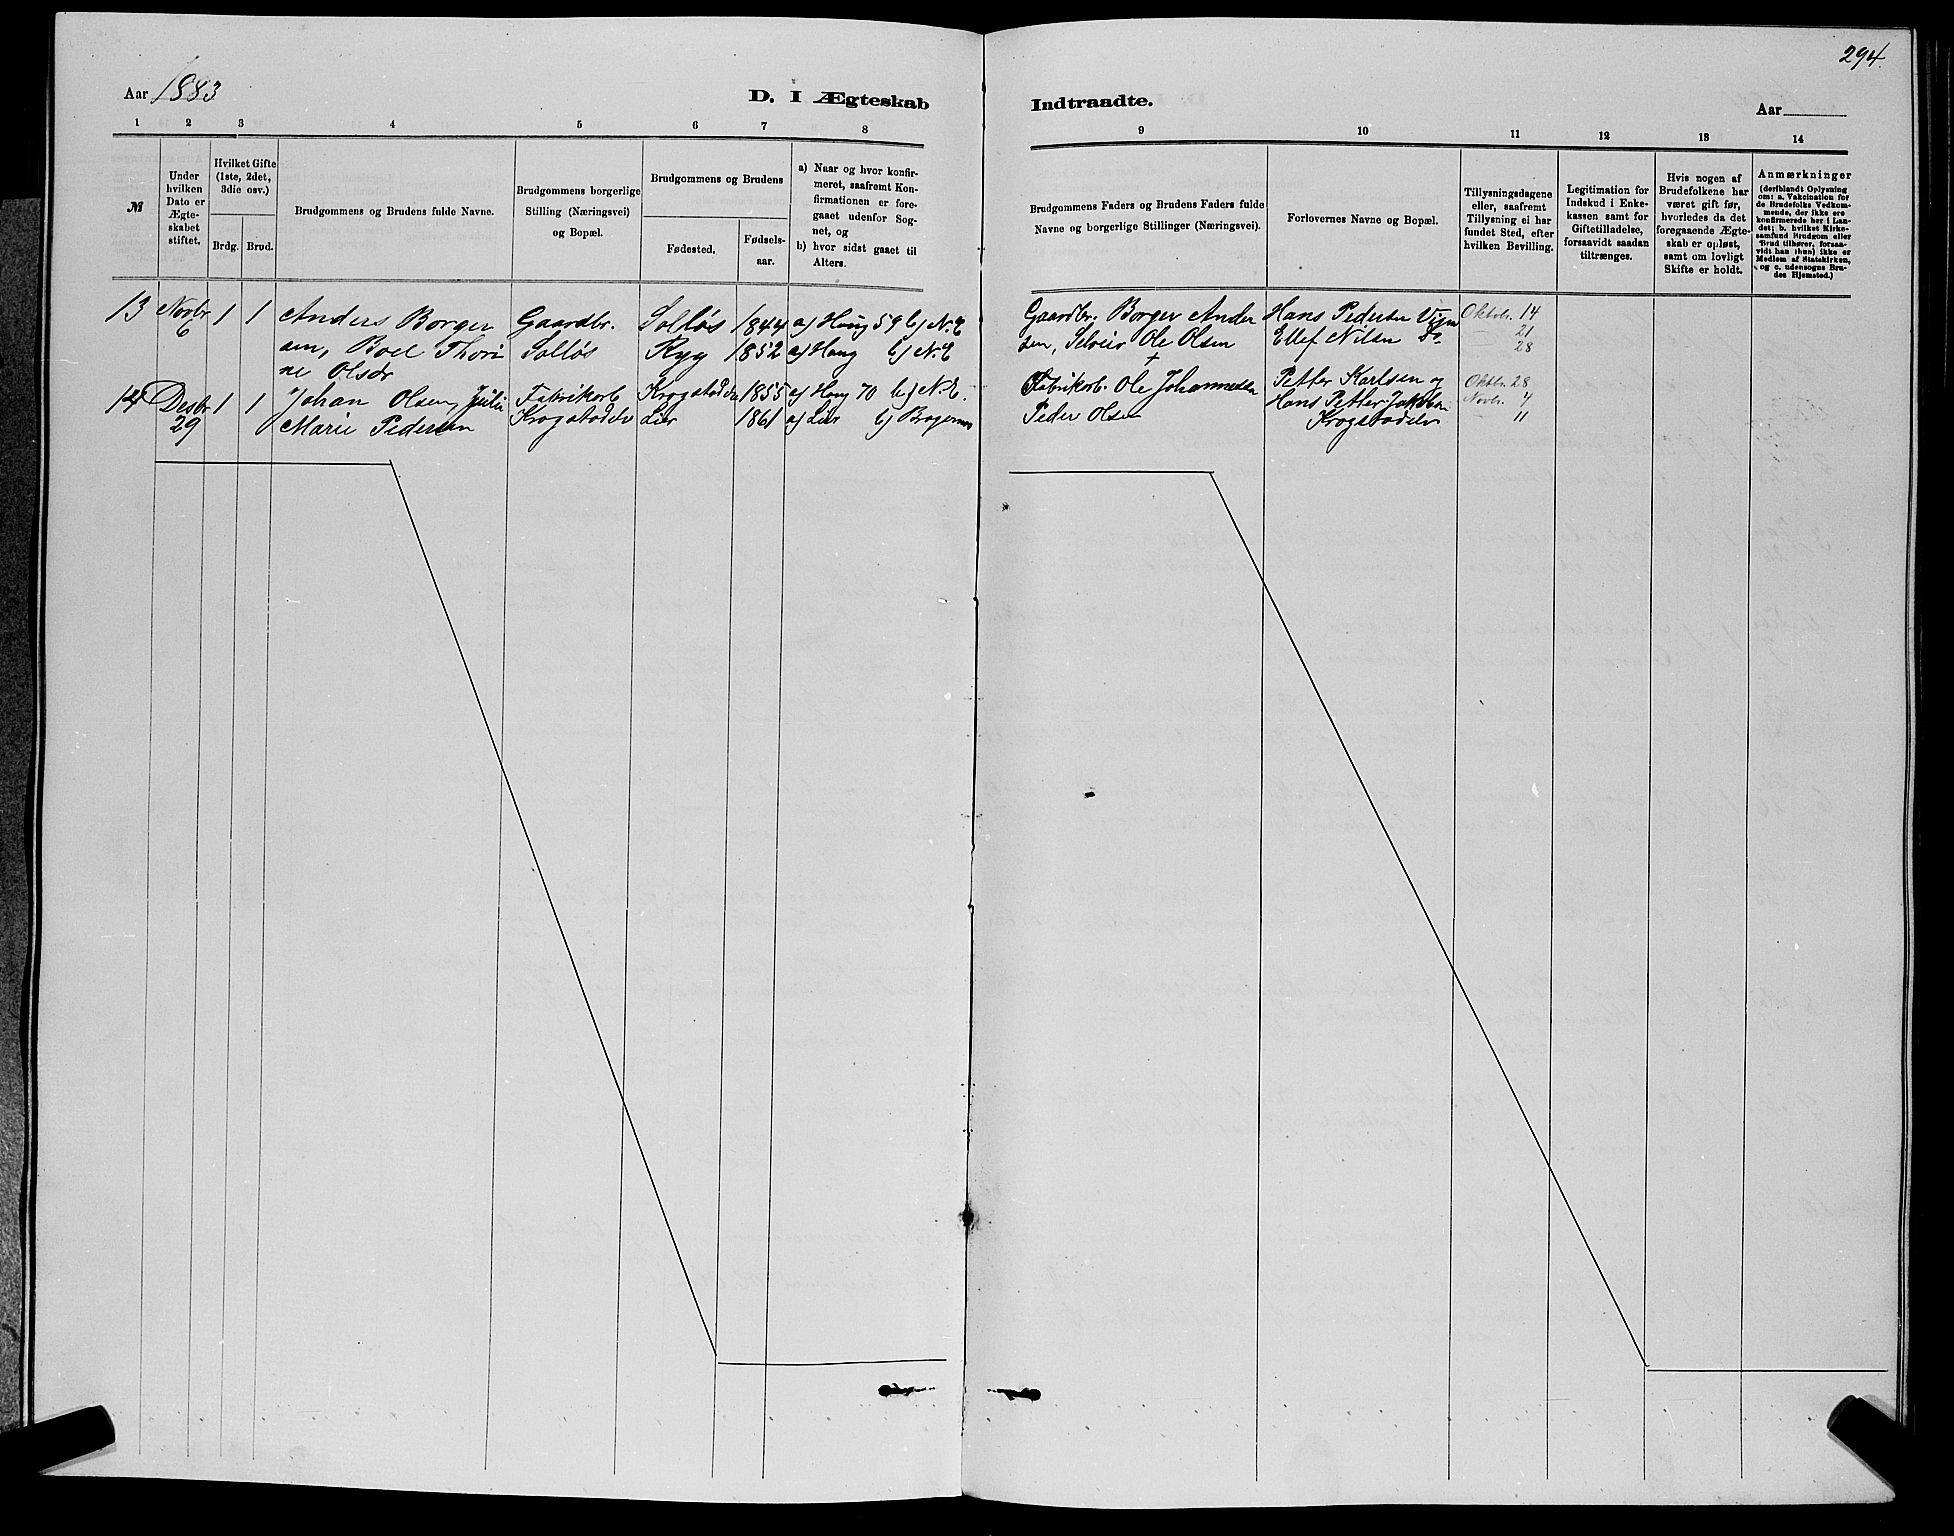 294.
Aar 1883
D. I Ægteskab
Indtraadte.
Aar
1 2 3 4 5 6 7 8
9 10 11 12 13 14
№
Under hvilken Dato er Ægteskabet stiftet.
Hvilket Gifte (1ste, 2det, 3die osv.)
Brdg. Brud.
Brudgommens og Brudens fulde Navne.
Brudgommens borgerlige Stilling (Næringsvei) og Bopæl.
Brudgommens og Brudens
Fødested.
Fødselsaar.
a) Naar og hvor konfirmeret, saafremt Konfirmationen er foregaaet udenfor Sognet, og
b) hvor sidst gaaet til Alters.
Brudgommens Faders og Brudens Faders fulde Navne og borgerlige Stillinger (Næringsvei).
Forlovernes Navne og Bopæl.
Tillysningsdagene eller, saafremt Tillysning ei har fundet Sted, efter hvilken Bevilling.
Legitimation for Indskud i Enkekassen samt for Giftetilladelse, forsaavidt saadan tiltrænges.
Hvis nogen af Brudefolkene har været gift før, hvorledes da det foregaaende Ægteskab er opløst, samt om lovligt Skifte er holdt.
Anmærkninger
(deriblandt Oplysning om: a. Vakcination for de Brudefolks Vedkommende, der ikke ere konfirmerede her i Landet; b. hvilket Kirkesamfund Brudgom eller Brud tilhører, forsaavidt han (hun) ikke er Medlem af Statskirken, og c. udensogns Brudes Hjemsted.)
13 Novbr 1 1 Anders Borger Gaardbr. Solløs 1844 a) Houg 59 b) N. E
6 sen, Boel Thori Solløs Ryg 1852 a) Houg b) N. E
ne Olsdr
14 Desbr 1 1 Johan Olsen, Julie Fabrikarb Krogstadelv 1855 a) Houg 70 b) N. E.
29 Marie Pedersen Krogstadelv Lier 1861 a) Lier b) Bragernes
Gaardbr. Borger Ander Hans Pedersen Oktbr. 14
sen, Selveier Ole Olsen Ellef Nilsen Do — 21
+ — 28
Fabrikarb. Ole Johannesen Petter Karlsen og Oktbr. 28
Peder Olsen Hans Petter Jakobsen Novbr. 4
Krogstadelv — 11